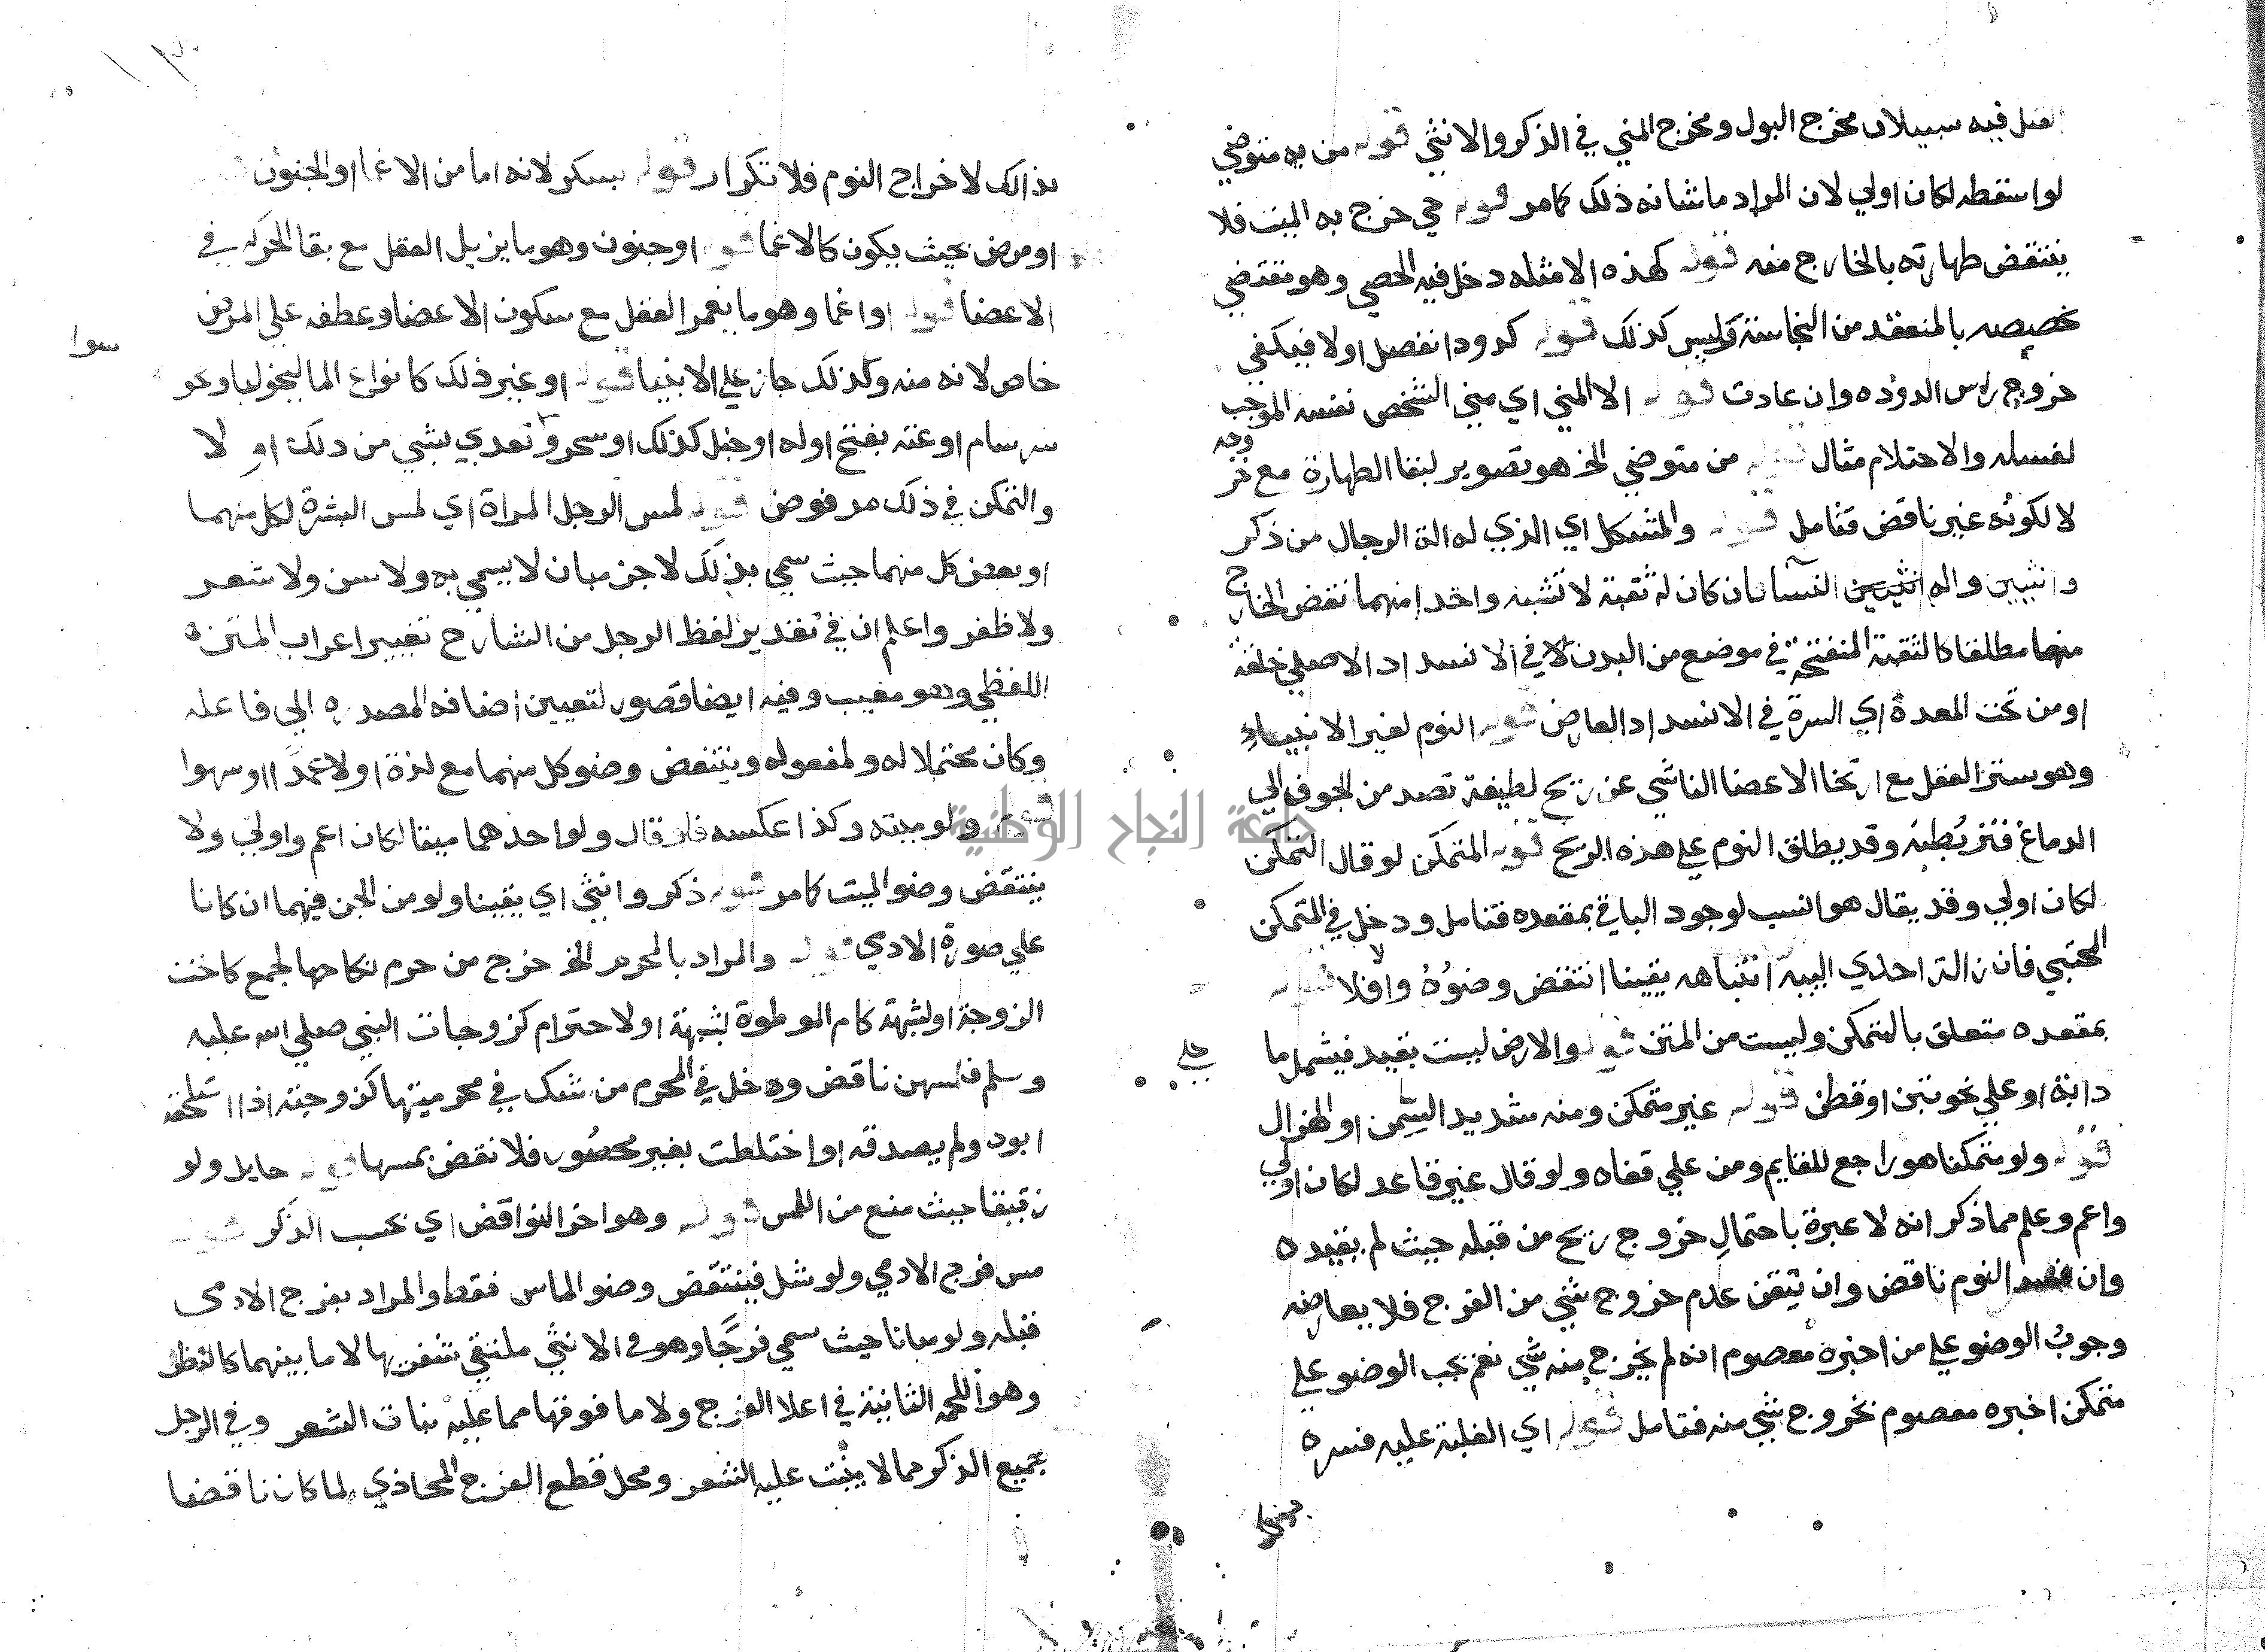 القبل فيه سبيلان مخرج البول ومخرج المني في الذكر والانثي قوله من به متوضي
لو اسقطه لكان اولي لان المراد ما شانه ذلك كما مر قوله حي خرج به الميت فلا
ينتقض طهارته بالخارج منه قوله كهذه الامثله دخل فيه الحصي وهو مقتضي
تخصيصه بالمنعقد من النجاسة وليس كذلك قوله كدود انفصل اولا فيكفي
خروج راس الدوده وان عادت قوله الا المني اي مني الشخص نفسه الموجب
لغسله والاحتلام مثال قوله من متوضي الخ هو تصوير لبقا الطهارة مع خروجه
لا لكونه غير ناقض فتامل قوله والمشكل اي الذي له الة الرجال من ذكر
وانثيين والة النسا فان كان له ثقبة لا تشبه واحدا منهما نقض الخارج
منها مطلقا كالثقبة المنفتحة في موضع من البدن لا في الانسداد الاصلي خلقة
او من تحت المعدة اي السرة في الانسداد العارض قوله النوم لغير الانبياء
وهو ستر العقل مع ارتخا الاعضا الناشي عن ريح لطيفة تصعد من الجوف الي
الدماغ فترطبه وقد يطلق النوم علي هذه الريح قوله المتمكن لو قال التمكن
لكان اولي وقد يقال هو انسب لوجود الباقي بمقعده فتامل ودخل في المتمكن
المحتبي فان زالت احدي الييه لا انتباهه يقينا انتقض وضوُهُ والا فلا قوله
بمقعده متعلق بالتمكن وليست من المتن قوله والارض ليست بقيد فيشمل ما
علي
دابة او علي نحو تبن او قطن قوله غير متمكن ومنه شديد السِّمن او الهزال
قوله ولو متمكنا هو راجع للقايم ومن علي قفاه ولو قال غير قاعد لكان اولي
واعم وعلم مما ذكر انه لا عبرة باحتمال خروج ريح من قبله حيث لم بقيده
وان النوم ناقض وان تيقن عدم خروج شي من الفرج فلا يعارضه
وجوبُ الوضو علي من اخبره معصوم انه لم يخرج منه شي نعم يجب الوضو علي
متمكن اخبره معصوم بخروج شي منه فتامل قوله اي الغلبة عليه فسره
بذالك لاخراج النوم فلا تكرار قوله بسكر لانه اما من الاغما او الجنون
او مرض بحيث يكون كالاغما قوله او جنون وهو ما يزيل العقل مع بقا الحركه في
الاعضا قوله او اغما وهو ما يغمر العقل مع سكون الاعضا وعطفه علي المرض
سوا
خاص لانه منه وكذلك جاز علي الانبيا قوله او غير ذلك كانواع الماليخوليا ونحو
سرسام او عته بفتح اوله او خبل كذلك او سحر وتعدي بشي من ذلك ام لا
والتمكن في ذلك مرفوض قوله لمس الرجل المراة اي لمس البشرة لكل منهما
او بعض كل منهما حيث سمي بذلك لا جزء مبان لا يسمي به ولا سن ولا شعر
ولا ظفر واعلم ان في تقدير لفظ الرجل من الشارح تغيير اعراب المتن
اللفظي وهو معيب وفيه ايضا قصور لتعيين اضافه المصدر الي فاعله
وكان محتملا له ولمفعوله وينتقض وضو كل منهما مع لذة او لا عمدًا او سهوا
قوله ولو ميته وكذا عكسه فلو قال ولو احدهما ميتا لكان اعم واولي ولا
ينتقض وضو الميت كما مر قوله ذكر وانثي اي يقينا ولو من الجن فيهما ان كانا
علي صورة الادمي قوله والمراد بالمحرم الخ خرج من حرم نكاحها لجمع كاخت
الزوجة او لشبهة كام الموطوة لشبهة او لاحترام كزوجات النبي صلي الله عليه
وسلم فلمسهن ناقض ودخل في المحرم من شك في محرميتها كزوجته اذا استلحقه
ابوه ولم يصدقه او اختلطت بغير محصُور فلا نقض بمسها قوله حايل ولو
رقيقا حيث منع من اللمس قوله وهو اخر النواقض اي بحسب الذكر قوله
مس فرج الادمي ولو شل فينتقض وضو الماس فقط والمراد بفرج الادمي
قبله ولو مبانا حيث سمي فرجًا وهو في الانثي ملتقي شفريها لا ما بينهما كالبظر
وهو اللحمة الثابتة في اعلا الفرج ولا ما فوقها مما عليه نبات الشعر وفي الرجل
جميع الذكر مما لا ينبت عليه الشعر ومحل قطع الفرج المحاذي لما كان ناقضا
جامعة النجاح الوطنية